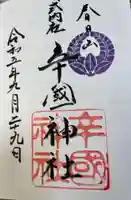 春日山
式内社
辛國神社
辛國
神社
令和五年九月二十九日